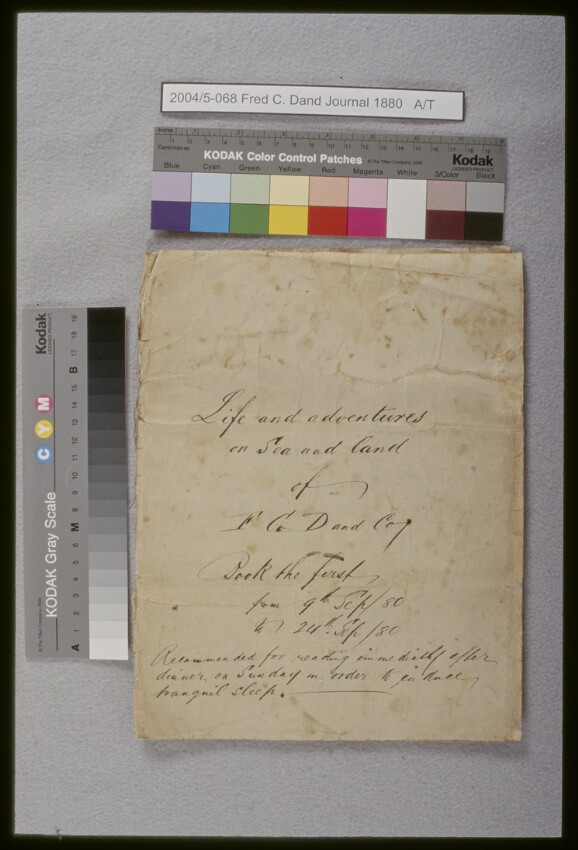 2004/5-068 Fred C. Dand Journal 1880 A/T
Inches 1 2 3 4 5 6 7 8
Centimetres 1 2 3 4 5 6 7 8 9 10 11 12 13 14 15 16 17 18 19
KODAK Color Control Patches © The Tiffen Company, 2000 Kodak
LICENSED PRODUCT
Blue Cyan Green Yellow Red Magenta White 3/Color Black
Kodak
LICENSED PRODUCT
KODAK Gray Scale
C Y M
© The Tiffen Company, 2000
A 1 2 3 4 5 6 M 8 9 10 11 12 13 14 15 B 17 18 19
Life and adventures
on Sea and land
of
F C. Dand Coy
Book the first
from 9th Sep/80
to 24th Sep/80
Recommended for reading immediately after
dinner on Sunday in order to induce
tranquil sleep.